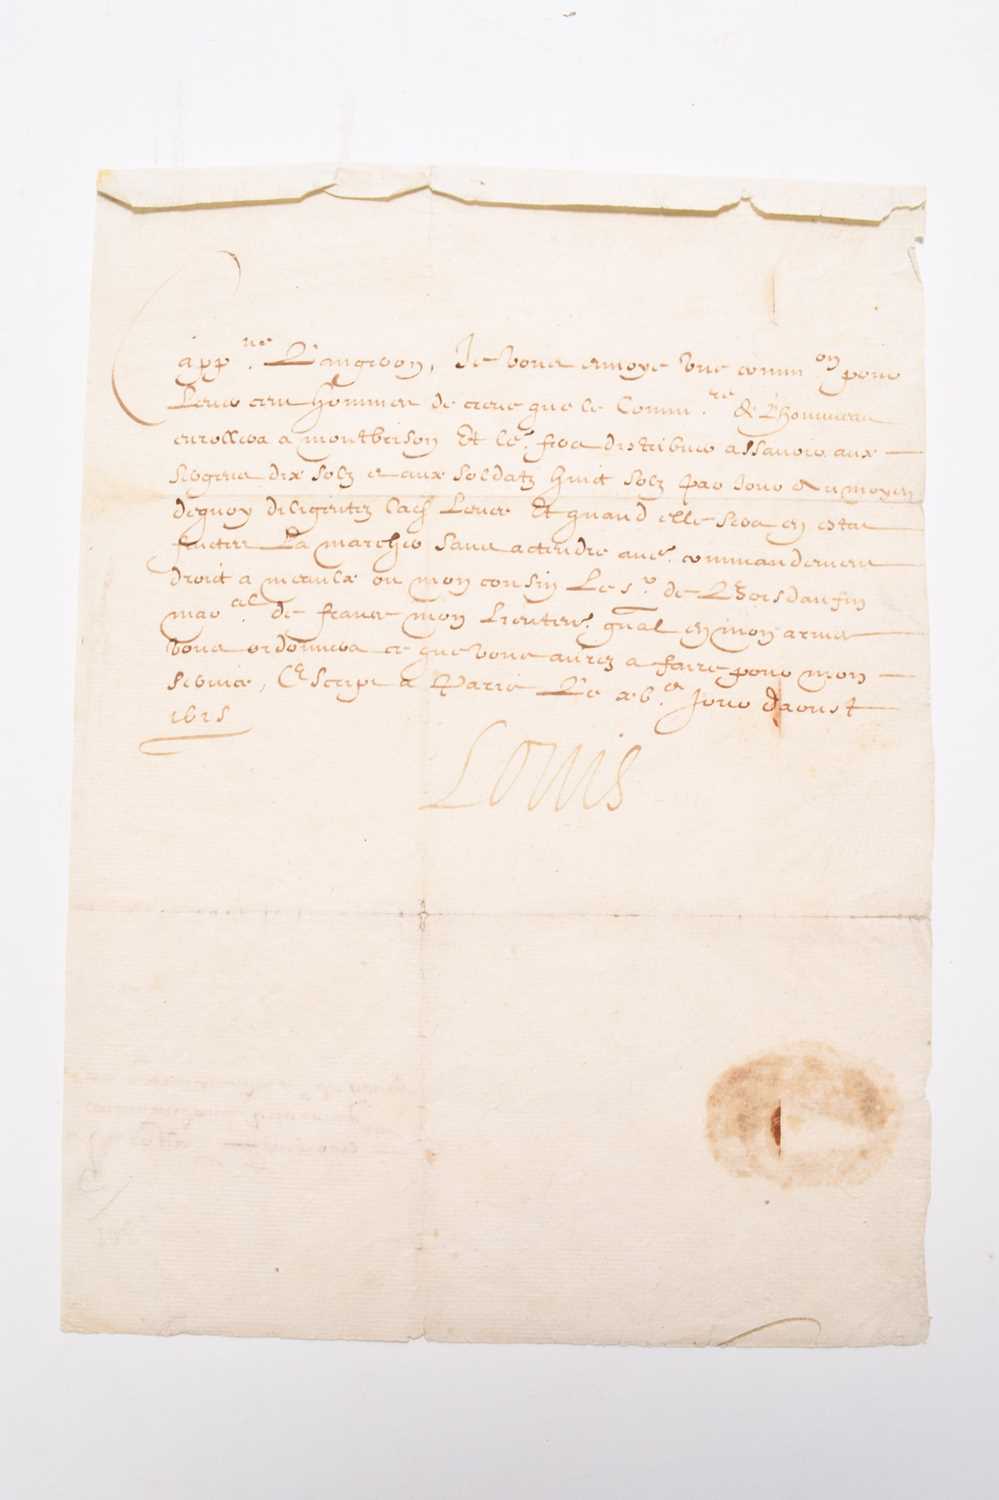 Capp.ne Langeron, Je vous envoye une comm.on pour
lever cent hommes de creue que le Comm.re de
enrollera a montbrison Et les fera distribuer assavoir aux
Sergens dix solz et aux soldatz huit solz par jour au moyen
dequoy diligentez lad levee Et quand elle sera en estat
faictes La marcher sans actendre autre commandement
droit a ou mon cousin Le s.r de Boisdaufin
mar.al de france mon Lieuten. gnal en mon armee
vous ordonnera ce que vous aurez a faire pour mon
service, Escript a Paris Le jour daoust
1615
Louis